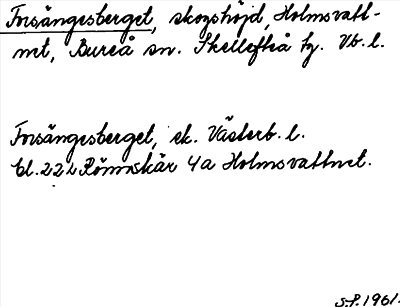 Forsängesberget, skogshöjd, Holmsvatt-
net, Bureå sn. Skellefteå tg. Vb. l.
Forsängesberget, ek. Västerb. l.
bl. 222 Rönnskär 4a Holmsvattnet.
S.P. 1961.